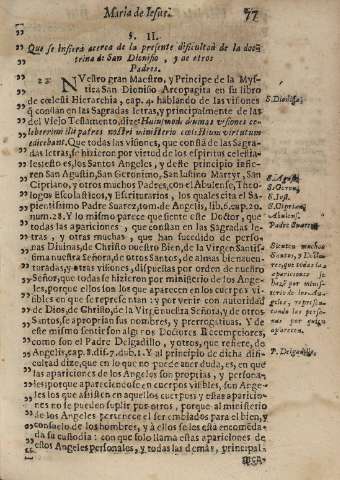 Maria de Iesus.
77
§. II.
Que se insiera acerca de la presente dificultad de la doc-
trina de San Dionisio, y de otros
Padres.
NVestro gran Maestro, y Principe de la Mys-
tica San Dionisio Areopagita en su libro
de cœlesti Hierarchia, cap. 4. hablando de las visiones
que constan en las Sagradas Letras, y principalmente de las
del Viejo Testamento, dize: divinas visiones ce-
leberrimi illi patres nostri ministerio cœlestium virtutum
Que todas las visiones, que consta de las Sagra-
das letras, se hizieron por virtud de los espiritus celestia-
les, esto es, los Santos Angeles, y deste principio infie-
ren San Agustin, San Geronimo, San Iustino Martyr, San
Cipriano, y otros muchos Padres, con el Abulense, Theo-
logos Escolasticos, y Escriturarios, los quales cita el Sa-
pientissimo Padre Suarez, tom. de Angelis, lib. 6. cap. 20.
num. 28. Y lo mismo parece que siente este Doctor, que
todas las apariciones, que constan en las Sagradas le-
tras, y otras muchas, que han sucedido de perso-
nas Divinas, de Christo nuestro Bien, de la Virgen Santissi-
ma nuestra Señora, de otros Santos, de almas bienauen-
turadas, y otras visiones, dispuestas por orden de nuestro
Señor, que todas se hizieron por ministerio de los Ange-
les, porque ellos son los que aparecen en los cuerpos vi-
sibles en que se representan: y por venir con autoridad
de Dios, de Christo, de la Virgen nuestra Señora, y de otros
Santos, se apropian sus nombres, y prerrogatiuas. Y de
este mismo sentir son algunos Doctores Recempiores,
como son el Padre Delgadillo, y otros, que refiere, de
Angelis, cap. 8. dis. 7. dub. 1. Y al principio de dicha difi-
cultad dize, que en lo que no puede auer duda, es, en que
las apariciones de los Angeles son proprias, y persona-
les: porque apareciendose en cuerpos visibles, son Ange-
les los que asisten en aquellos cuerpos, y estas aparicio-
nes no se pueden suplir por otros, porque al ministerio
de los Angeles pertenece el ser embiados para el bien, y
consuelo de los hombres, y à ellos se les esta encomēda-
da su custodia: con que solo llama estas apariciones de
estos Angeles personales, y todas las demás, principal-
S. Dionisio.
S. Agust.
S. Geron.
S. Iust.
S. Ciprian.
Abulens.
Padre Suarez
Sienten muchos
Santos, y Docto-
res, que todas las
apariciones se
haz. por minis-
terio de los An-
geles, represen-
tando las perso-
nas por quien
aparecen.
P. Delgadillo.